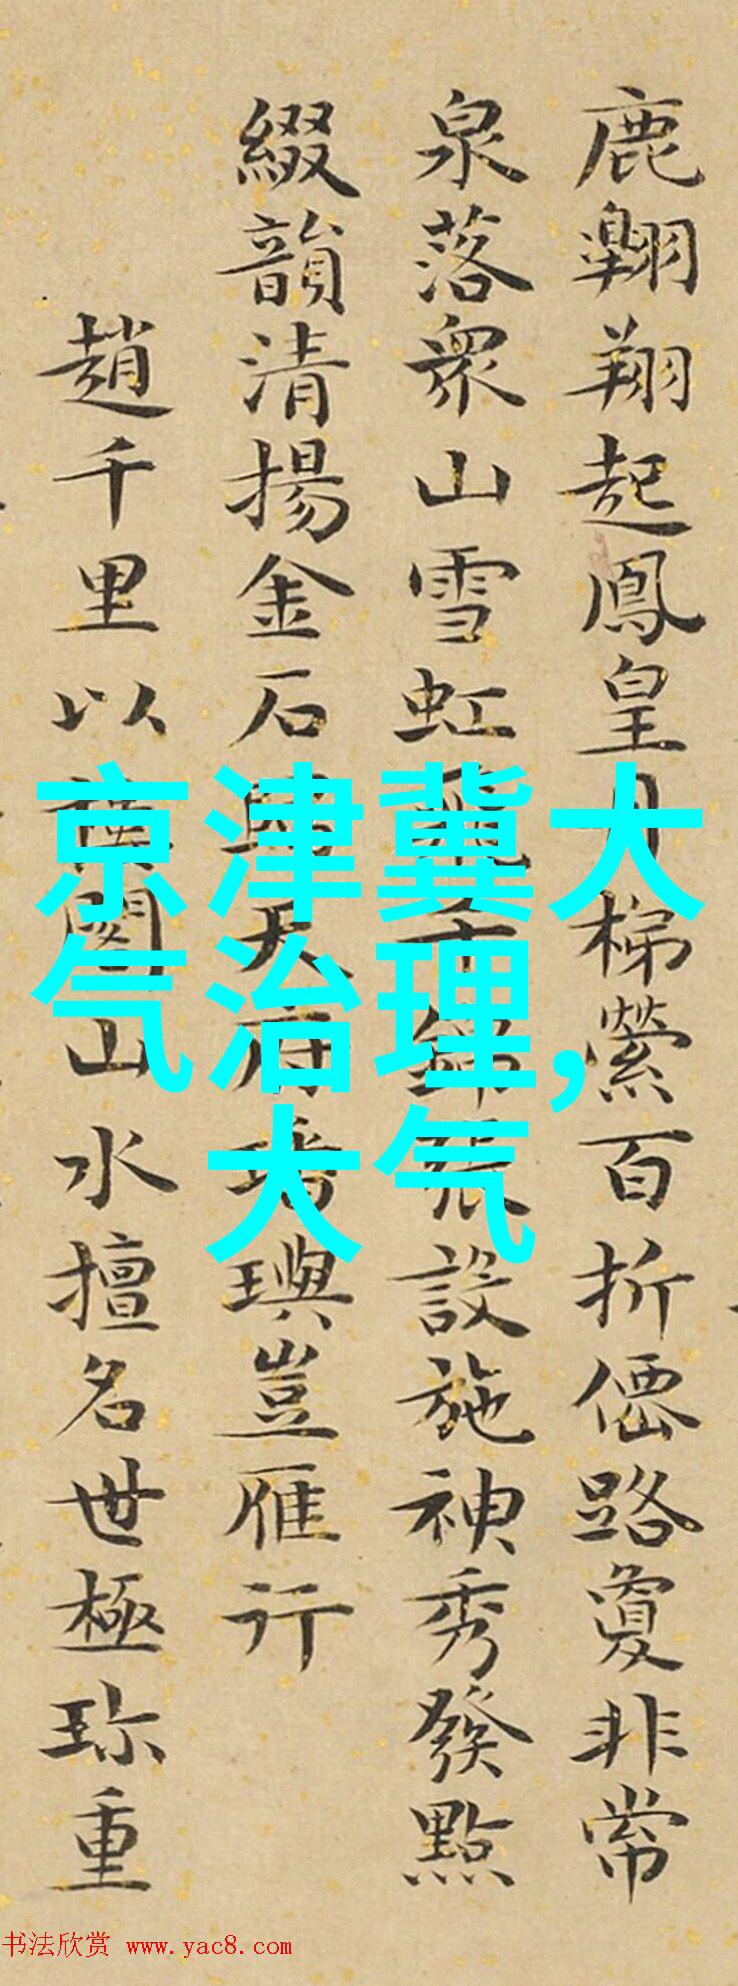 鹿翺翔起鳳皇月梯縈百折僊路敻非常
泉落衆山雪虹飛錦張設施神秀發點
綴韻清揚金石天府璠璵豈雁行
趙千里以樓閣山水擅名世極珍重
京津冀大
气治理,
大气
书法欣赏 www.yac8.com